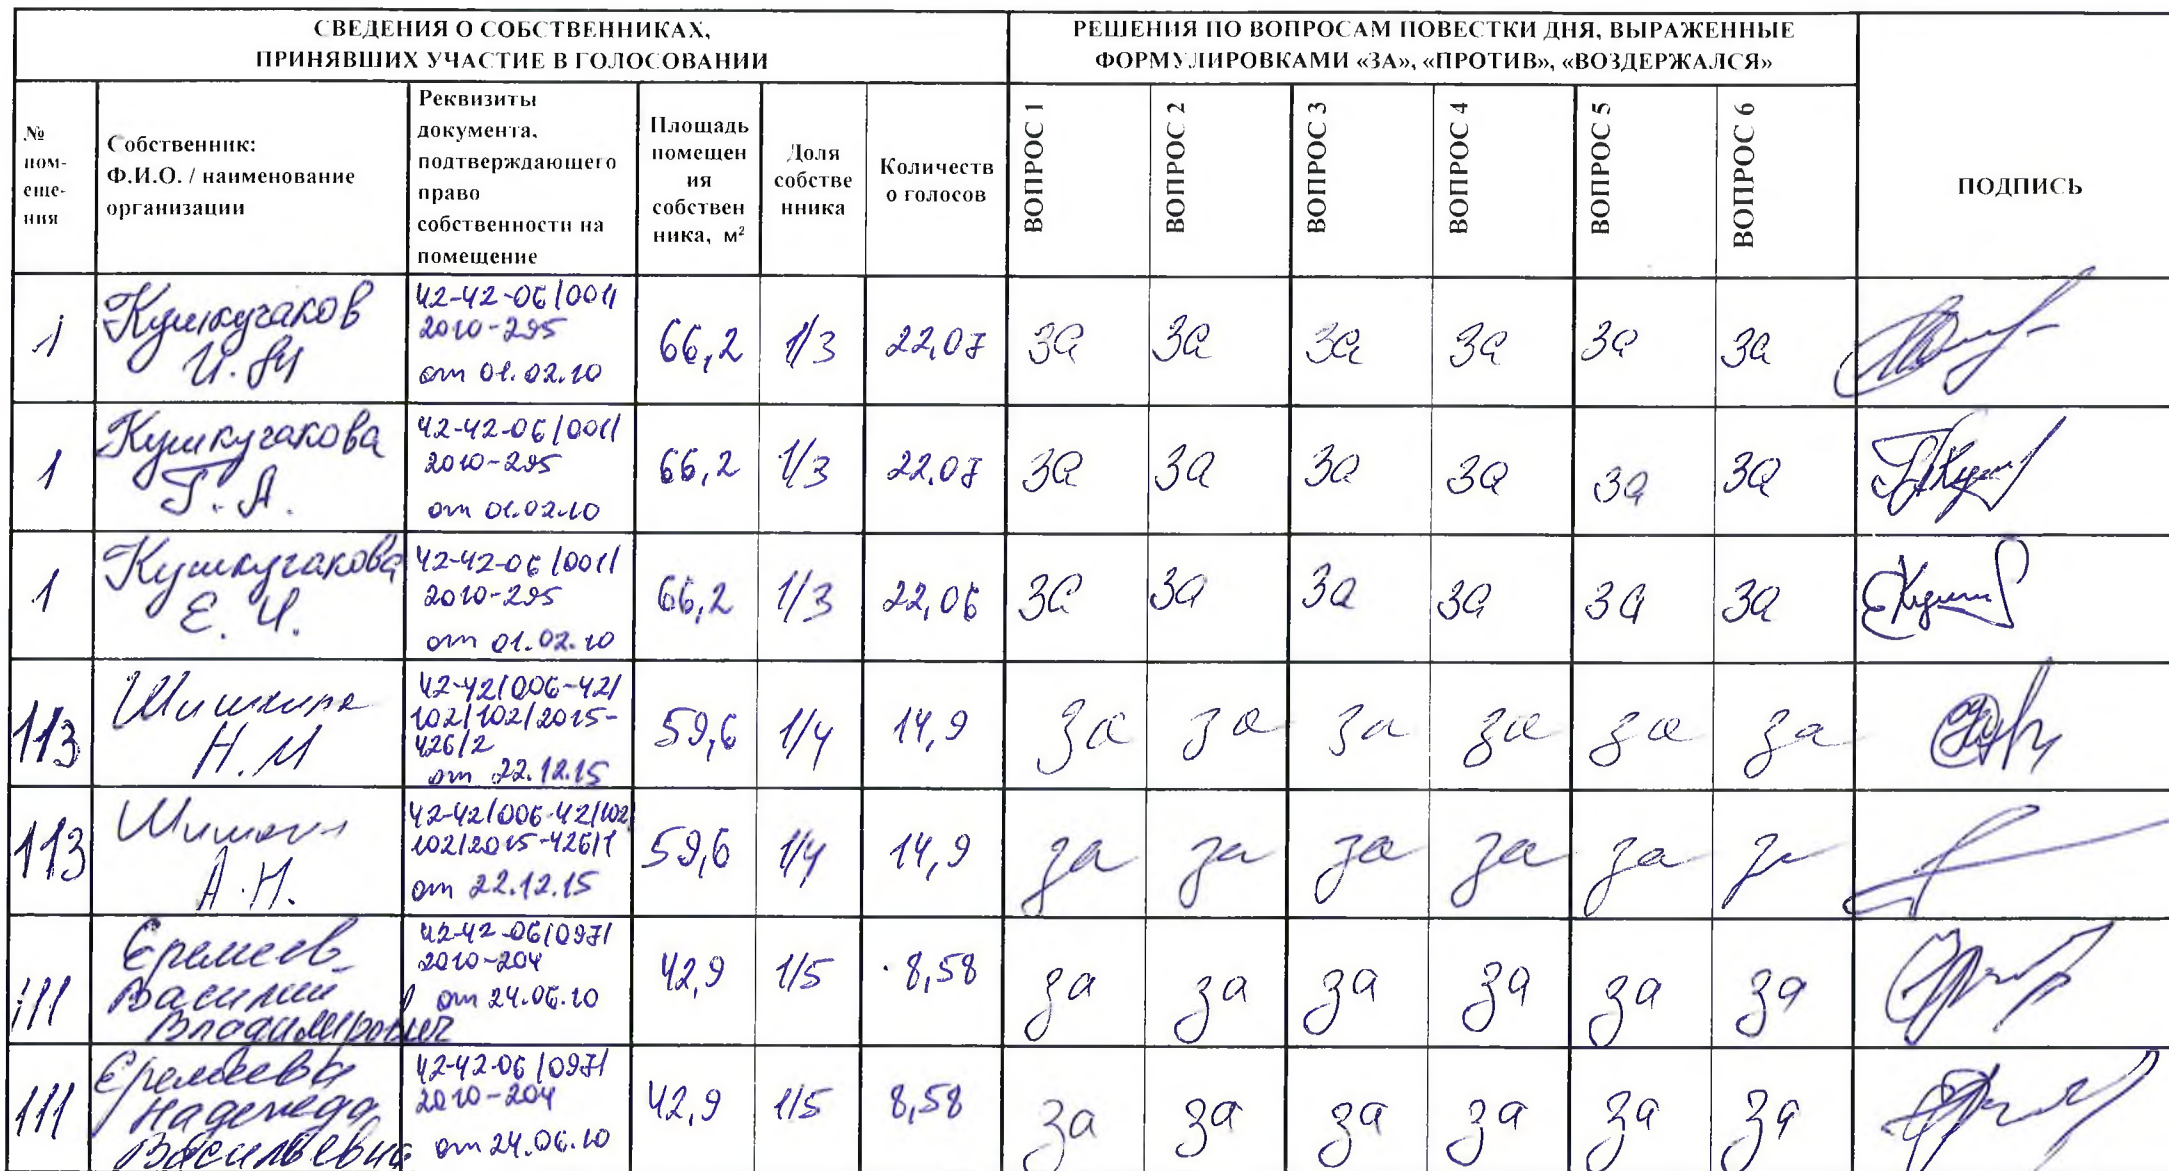 СВЕДЕНИЯ О СОБСТВЕННИКАХ,
ПРИНЯВШИХ УЧАСТИЕ В ГОЛОСОВАНИИ
РЕШЕНИЯ ПО ВОПРОСАМ ПОВЕСТКИ ДНЯ, ВЫРАЖЕННЫЕ
ФОРМУЛИРОВКАМИ «ЗА», «ПРОТИВ», «ВОЗДЕРЖАЛСЯ»
№
пом-
еще-
ния
Собственник:
Ф.И.О. / наименование
организации
Реквизиты
документа,
подтверждающего
право
собственности на
помещение
Площадь
помещен
ия
собствен
ника, м²
Доля
собстве
нника
Количеств
о голосов
ВОПРОС 1
ВОПРОС 2
ВОПРОС 3
ВОПРОС 4
ВОПРОС 5
ВОПРОС 6
ПОДПИСЬ
1
Кушкучаков
42-42-06/001/
2010-295
от 01.02.10
66,2 1/3 22,07 за за за за за за
1
Кушкучакова
Г. А.
42-42-06/001/
2010-295
от 01.02.10
66,2 1/3 22,07 за за за за за за
1
Кушкучакова
Е. И.
42-42-06/001/
2010-295
от 01.02.10
66,2 1/3 22,06 за за за за за за
113
Шишкина
Н. М
42-42/006-42/
102/102/2015-
426/2
от 22.12.15
59,6 1/4 14,9 за за за за за за
113
Шишкин
А. Н.
42-42/006-42/102
102/2015-426/1
от 22.12.15
59,6 1/4 14,9 за за за за за за
111
Еремеев
Василий
Владимирович
42-42-06/097/
2010-204
от 24.06.10
42,9 1/5 8,58 за за за за за за
111
Еремеева
Надежда
Васильевна
42-42-06/097/
2010-204
от 24.06.10
42,9 1/5 8,58 за за за за за за